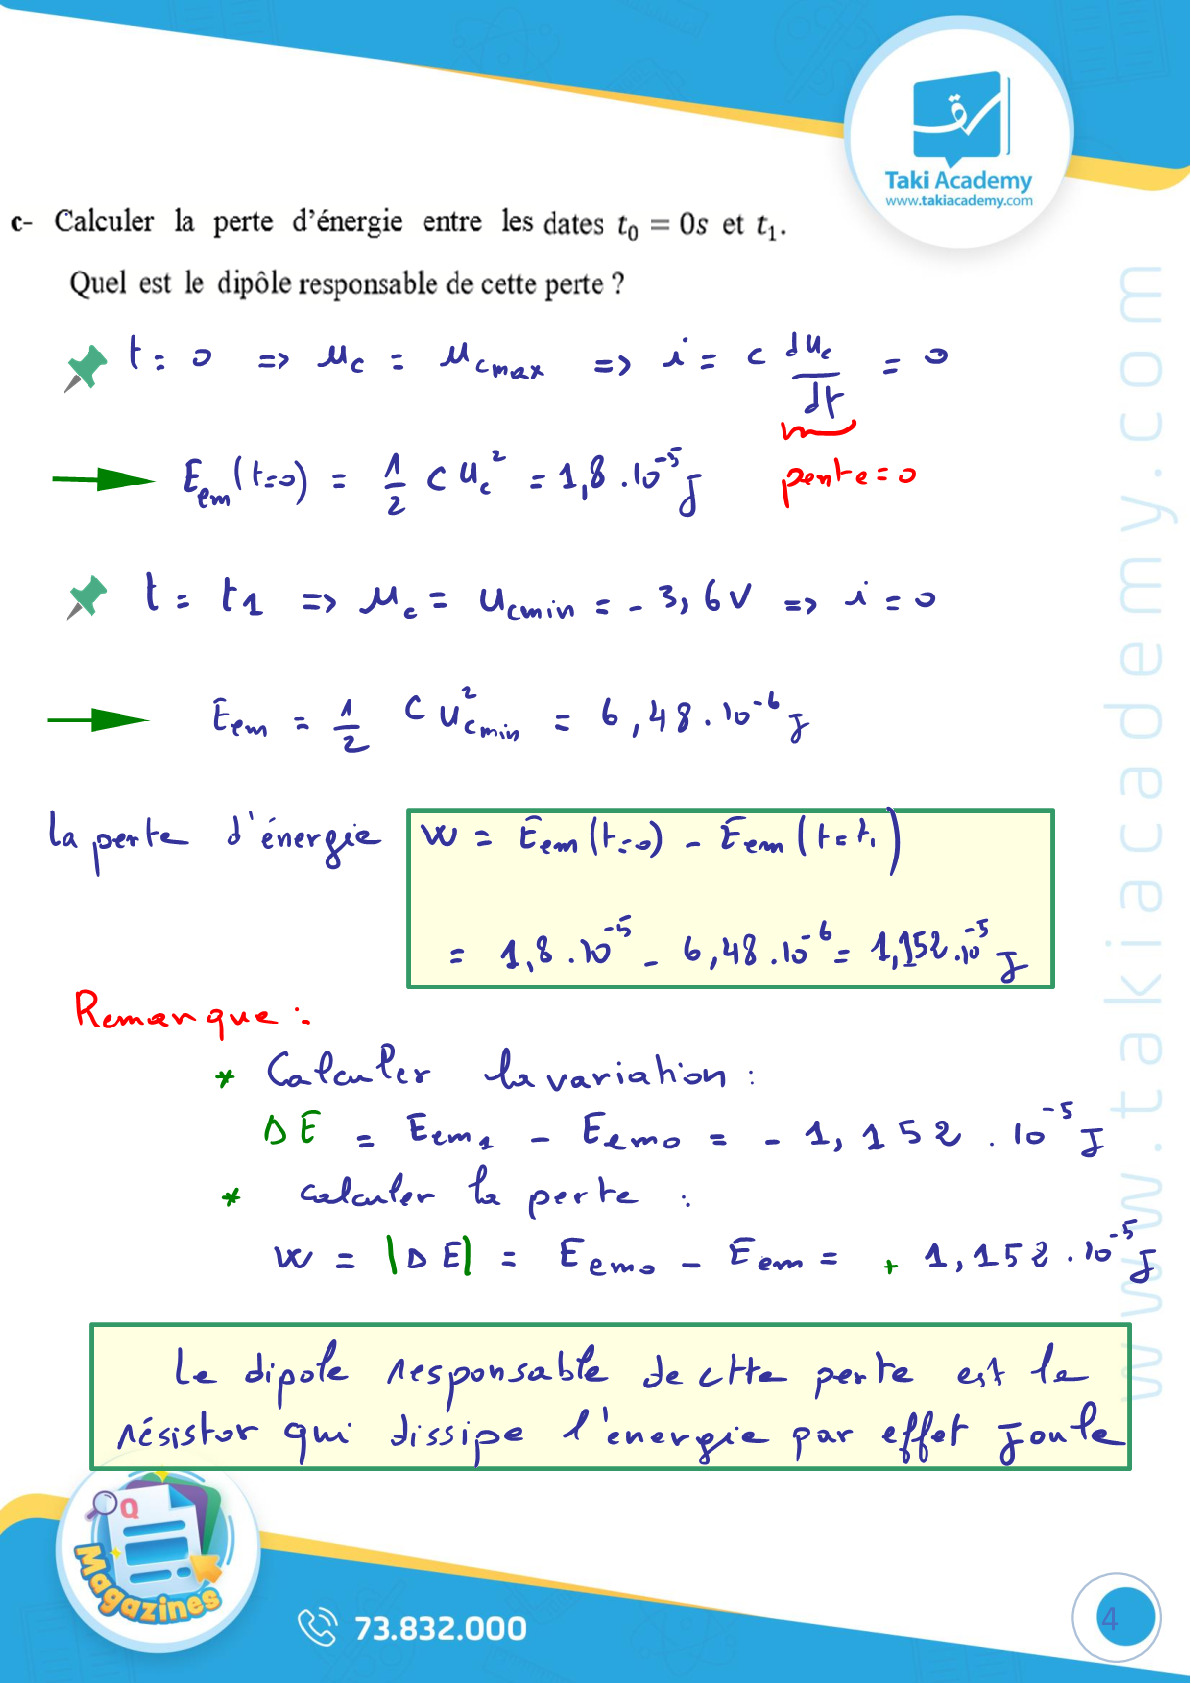 Taki Academy
www.takiacademy.com
c- Calculer la perte d'énergie entre les dates t₀ = 0s et t₁.
Quel est le dipôle responsable de cette perte ?
t = 0 => uc = ucmax => i = C duc/dt = 0
pente = 0
Eem(t=0) = 1/2 C uc² = 1,8 . 10⁻⁵ J
t = t1 => uc = ucmin = - 3,6V => i = 0
Eem = 1/2 C u²cmin = 6,48 . 10⁻⁶ J
la perte d'énergie W = Eem(t=0) - Eem(t=t₁)
= 1,8 . 10⁻⁵ - 6,48 . 10⁻⁶ = 1,152 . 10⁻⁵ J
Remarque :
* Calculer la variation :
ΔE = Eem1 - Eem0 = - 1,152 . 10⁻⁵ J
* calculer la perte :
W = |ΔE| = Eem0 - Eem = + 1,152 . 10⁻⁵ J
Le dipole responsable de ctte perte est le
résistor qui dissipe l'énergie par effet Joule
www.takiacademy.com
Q
Magazines
73.832.000
4